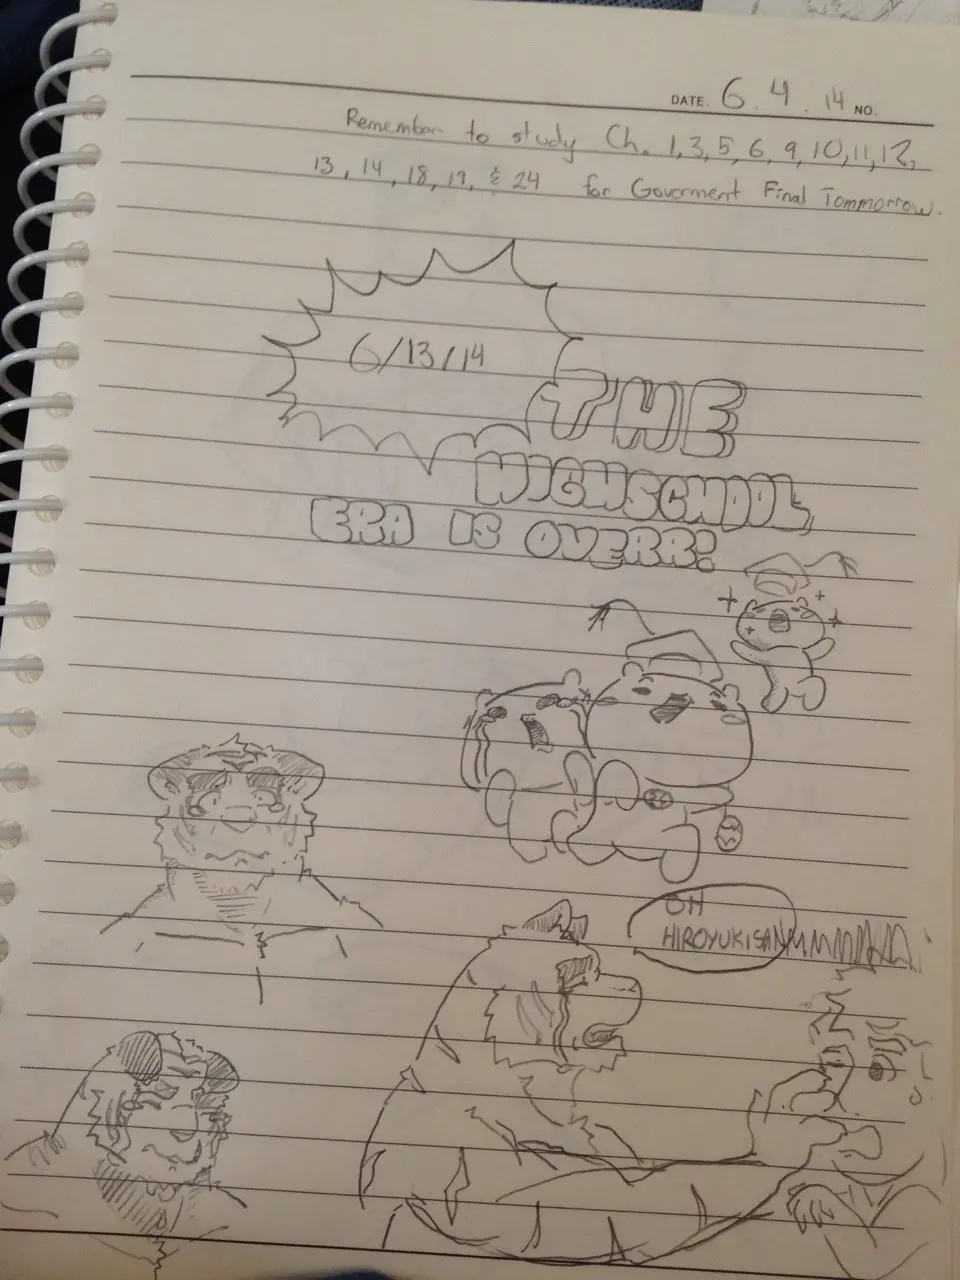 DATE. 6. 4. 14 NO.
Remember to study Ch. 1, 3, 5, 6, 9, 10, 11, 12,
13, 14, 18, 19, & 24 for Goverment Final Tommorrow.
6/13/14
THE
HIGHSCHOOL
ERA IS OVERR!
OH
HIROYUKISAN